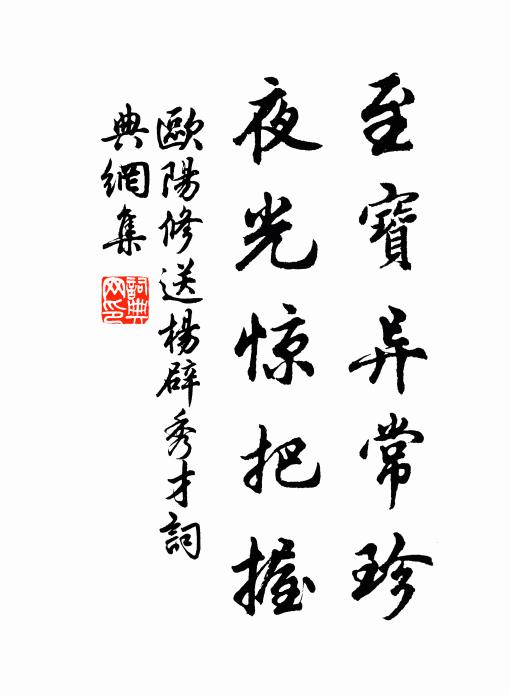 至寶异常珍
夜光惊把握
歐陽修送楊辟秀才詞
典網集
詞典
网印